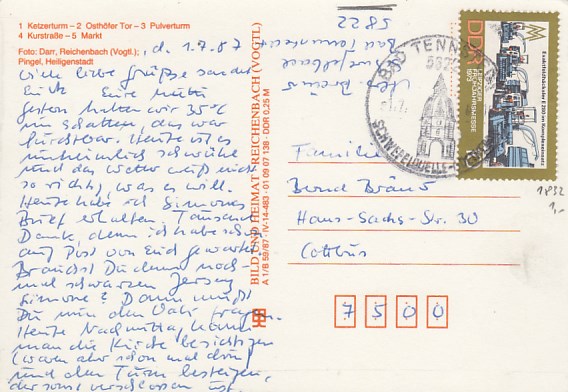 1 Ketzerturm – 2 Osthöfer Tor – 3 Pulverturm
4 Kurstraße – 5 Markt
Foto: Darr, Reichenbach (Vogtl.);
Pingel, Heiligenstadt
d. 1.7.87
Viele liebe Grüße sendet
Euch Eure Mutti
Gestern hatten wir 35°C
im Schatten, das war
furchtbar. Heute ist es
unheimlich schwül
und das Wetter weiß nicht
so richtig, was es will.
Heute habe ich Simones
Brief erhalten. Tausend
Dank, denn ich habe schon
auf Post von Euch gewartet.
Brauchst Du denn noch
mal schwarzen Jersey
Simone? Dann mußt
Du mir den Vati fragen.
Heute Nachmittag kann
man die Kirche besichtigen
(waren aber schon mal drin)
und den Turm besteigen,
der sonst verschlossen ist.
BILD UND HEIMAT REICHENBACH (VOGTL)
A 1/B 59/87 IV-14-483 01 09 07 138 DDR 0,25 M
Bad Tennstedt
5822
BAD TENNST
5822
SCHWEFELHEILBAD
DDR
LEIPZIGER
FRÜHJAHRSMESSE
1975
Eisen
Familie
Bernd Bräuer
Hans-Sachs-Str. 30
Cottbus
7500
1832
1,-